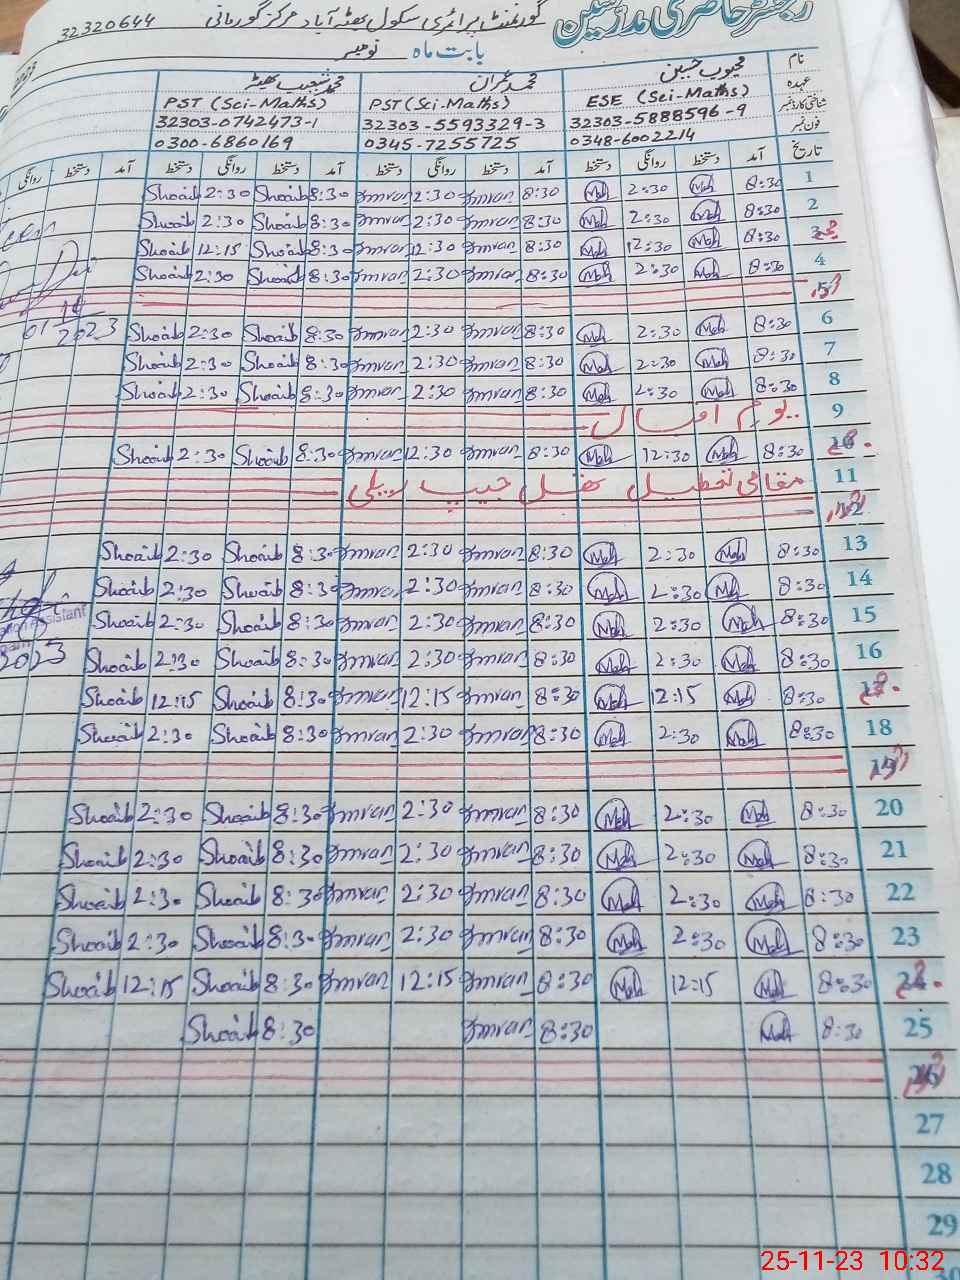 رجسٹر حاضری مدرسین
گورنمنٹ پرائمری سکول بھٹہ آباد مرکز گورمانی 32320644
بابت ماہ نومبر
نام محبوب حسین محمد عمران محمد شعیب بھٹہ
عہدہ ESE (Sci-Maths) PST (Sci-Maths) PST (Sci-Maths)
شناختی کارڈ نمبر 32303-5888596-9 32303-5593329-3 32303-0742473-1
فون نمبر 0348-6002214 0345-7255725 0300-6860169
تاریخ آمد دستخط روانگی دستخط آمد دستخط روانگی دستخط آمد دستخط روانگی دستخط آمد دستخط روانگی
1 8:30 Meh 2:30 Meh 8:30 Imran 2:30 Imran 8:30 Shoaib 2:30 Shoaib
2 8:30 Meh 2:30 Meh 8:30 Imran 2:30 Imran 8:30 Shoaib 2:30 Shoaib
3 8:30 Meh 12:30 Meh 8:30 Imran 12:30 Imran 8:30 Shoaib 12:15 Shoaib
4 8:30 Meh 2:30 Meh 8:30 Imran 2:30 Imran 8:30 Shoaib 2:30 Shoaib
5
6 8:30 Meh 2:30 Meh 8:30 Imran 2:30 Imran 8:30 Shoaib 2:30 Shoaib
7 8:30 Meh 2:30 Meh 8:30 Imran 2:30 Imran 8:30 Shoaib 2:30 Shoaib
8 8:30 Meh 2:30 Meh 8:30 Imran 2:30 Imran 8:30 Shoaib 2:30 Shoaib
9 یوم اقبال
10 8:30 Meh 12:30 Meh 8:30 Imran 12:30 Imran 8:30 Shoaib 2:30 Shoaib
11 مقامی تعطیل تھل جیپ ریلی
12
13 8:30 Meh 2:30 Meh 8:30 Imran 2:30 Imran 8:30 Shoaib 2:30 Shoaib
14 8:30 Meh 2:30 Meh 8:30 Imran 2:30 Imran 8:30 Shoaib 2:30 Shoaib
15 8:30 Meh 2:30 Meh 8:30 Imran 2:30 Imran 8:30 Shoaib 2:30 Shoaib
16 8:30 Meh 2:30 Meh 8:30 Imran 2:30 Imran 8:30 Shoaib 2:30 Shoaib
17 8:30 Meh 12:15 Meh 8:30 Imran 12:15 Imran 8:30 Shoaib 12:15 Shoaib
18 8:30 Meh 2:30 Meh 8:30 Imran 2:30 Imran 8:30 Shoaib 2:30 Shoaib
19
20 8:30 Meh 2:30 Meh 8:30 Imran 2:30 Imran 8:30 Shoaib 2:30 Shoaib
21 8:30 Meh 2:30 Meh 8:30 Imran 2:30 Imran 8:30 Shoaib 2:30 Shoaib
22 8:30 Meh 2:30 Meh 8:30 Imran 2:30 Imran 8:30 Shoaib 2:30 Shoaib
23 8:30 Meh 2:30 Meh 8:30 Imran 2:30 Imran 8:30 Shoaib 2:30 Shoaib
24 8:30 Meh 12:15 Meh 8:30 Imran 12:15 Imran 8:30 Shoaib 12:15 Shoaib
25 8:30 Meh 8:30 Imran 8:30 Shoaib
26
27
28
29
30
2023
Assistant
2023
25-11-23 10:32